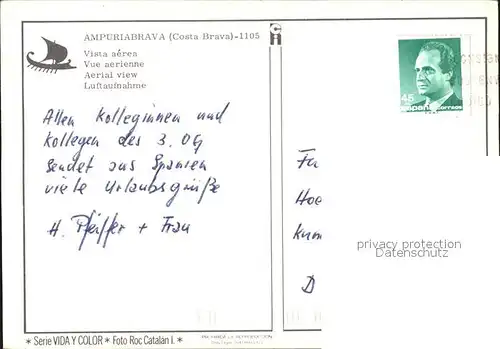 AMPURIABRAVA (Costa Brava)-1105
Vista aérea
Vue aerienne
Aerial view
Luftaufnahme
Allen Kolleginnen und
Kollegen des 3. OG
sendet aus Spanien
viele Urlaubsgrüße
H. Pfeiffer + Frau
45
españa correos
Fa
Hoe
Kum
D
privacy protection
Datenschutz
* Serie VIDA Y COLOR * Foto Roc Catalan I. *